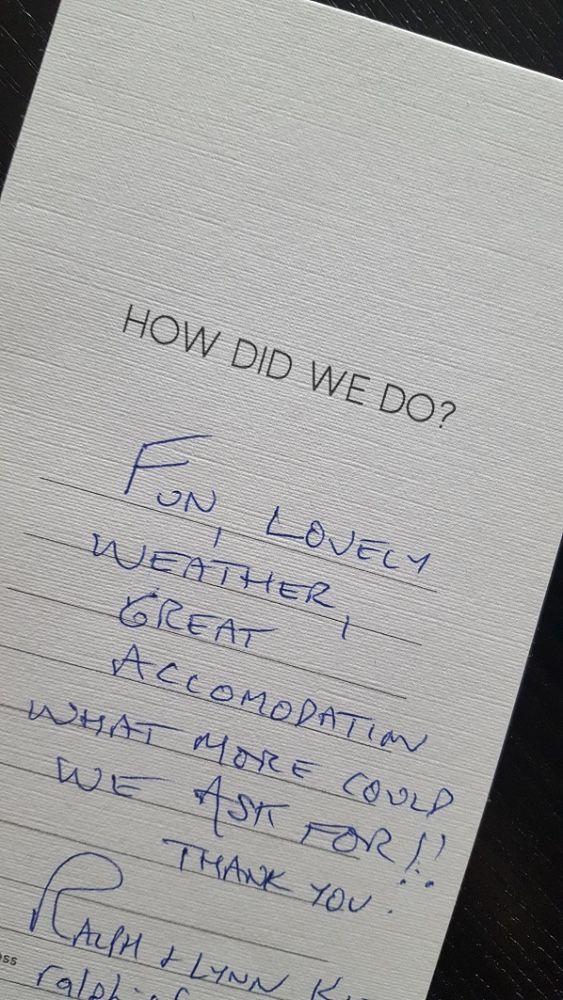 HOW DID WE DO?
FUN, LOVELY
WEATHER,
GREAT
ACCOMODATION
WHAT MORE COULD
WE ASK FOR!!
THANK YOU.
RALPH & LYNN